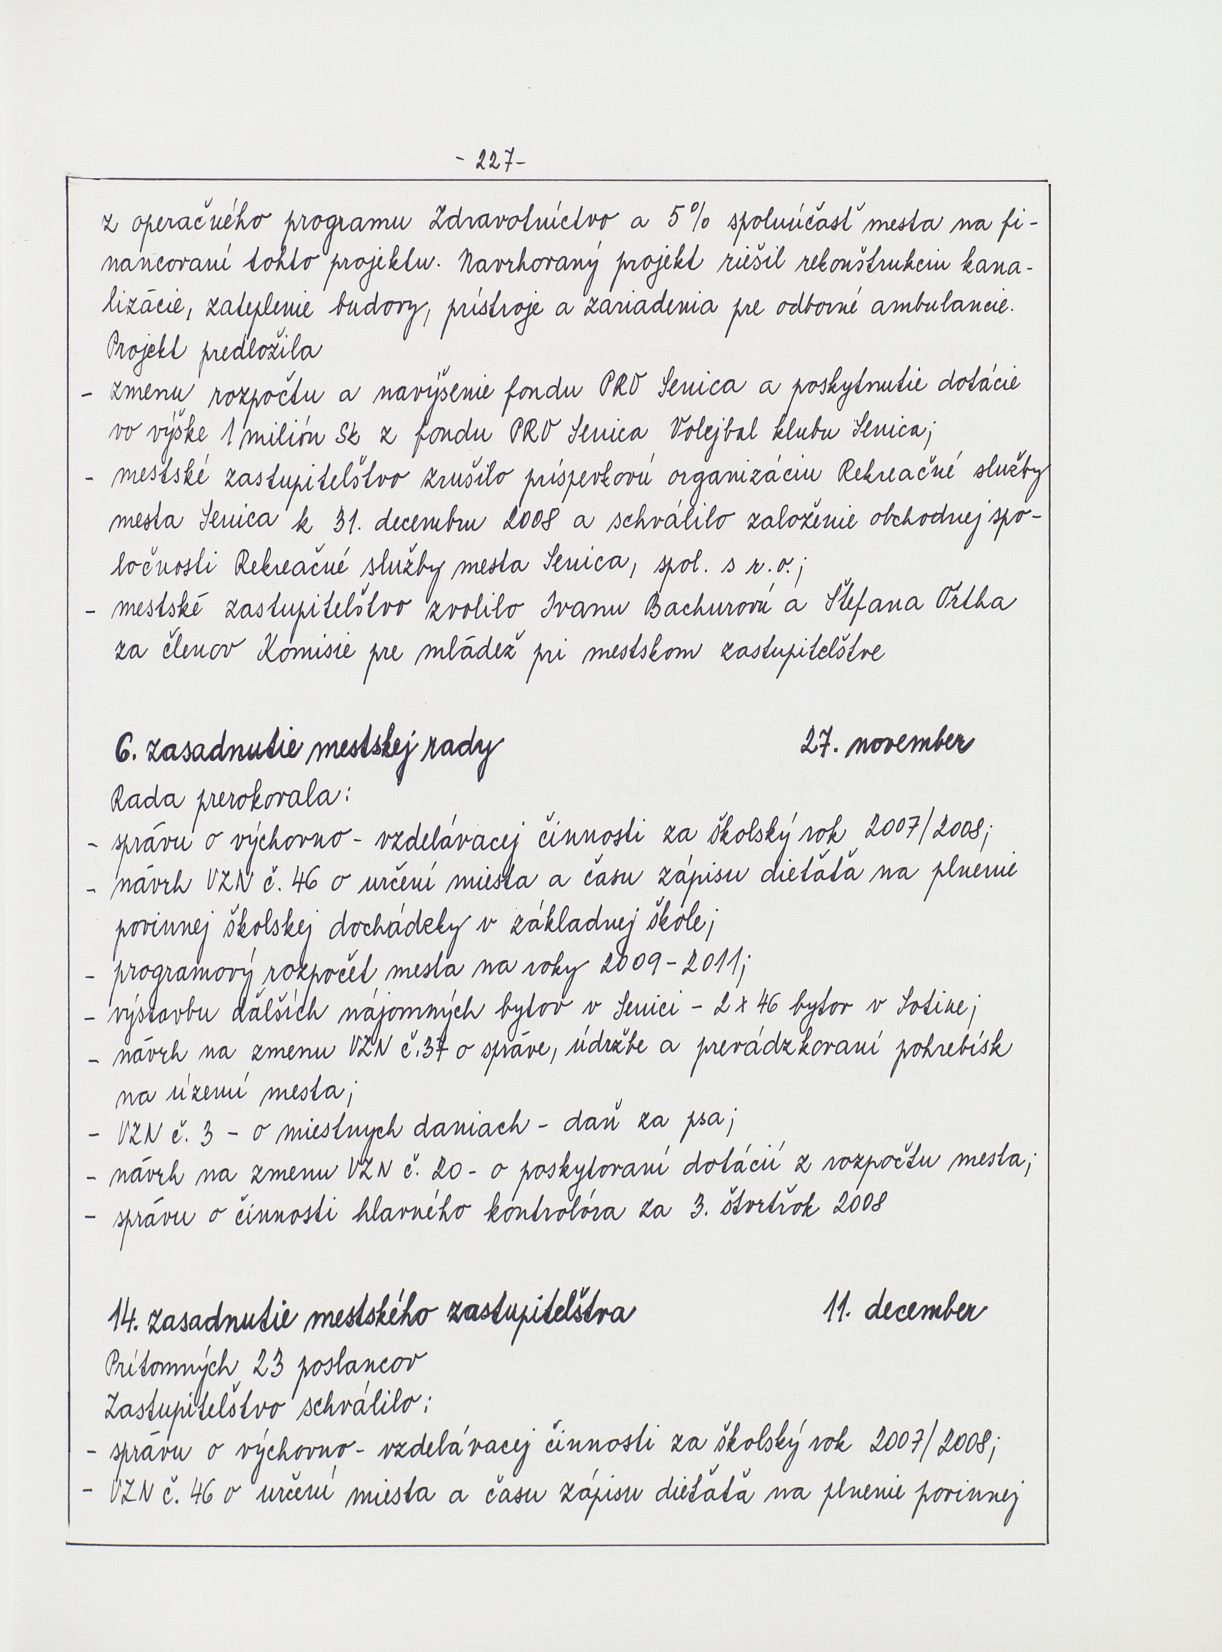 - 227-
z operačného programu Zdravotníctvo a 5% spoluúčasť mesta na fi-
nancovaní tohto projektu. Navrhovaný projekt riešil rekonštrukciu kana-
lizácie, zateplenie budovy, prístroje a zariadenia pre odborné ambulancie.
Projekt predložila
- zmenu rozpočtu a navýšenie fondu PRO Senica a poskytnutie dotácie
vo výške 1 milión Sk z fondu PRO Senica Volejbal klubu Senica;
- mestské zastupiteľstvo zrušilo príspevkovú organizáciu Rekreačné služby
mesta Senica k 31. decembru 2008 a schválilo založenie obchodnej spo-
ločnosti Rekreačné služby mesta Senica, spol. s r.o.;
- mestské zastupiteľstvo zvolilo Ivanu Bachurovú a Štefana Ortha
za členov Komisie pre mládež pri mestskom zastupiteľstve
6. zasadnutie mestskej rady 27. november
Rada prerokovala:
- správu o výchovno - vzdelávacej činnosti za školský rok 2007/2008;
- návrh VZN č. 46 o určení miesta a času zápisu dieťaťa na plnenie
povinnej školskej dochádzky v základnej škole;
- programový rozpočet mesta na roky 2009-2011;
- výstavbu ďalších nájomných bytov v Senici - 2 x 46 bytov v Sotine;
- návrh na zmenu VZN č.37 o správe, údržbe a prevádzkovaní pohrebísk
na území mesta;
- VZN č. 3 - o miestnych daniach - daň za psa;
- návrh na zmenu VZN č. 20 - o poskytovaní dotácií z rozpočtu mesta;
- správu o činnosti hlavného kontrolóra za 3. štvrťrok 2008
14. zasadnutie mestského zastupiteľstva 11. december
Prítomných 23 poslancov
Zastupiteľstvo schválilo:
- správu o výchovno - vzdelávacej činnosti za školský rok 2007/2008;
- VZN č. 46 o určení miesta a času zápisu dieťaťa na plnenie povinnej